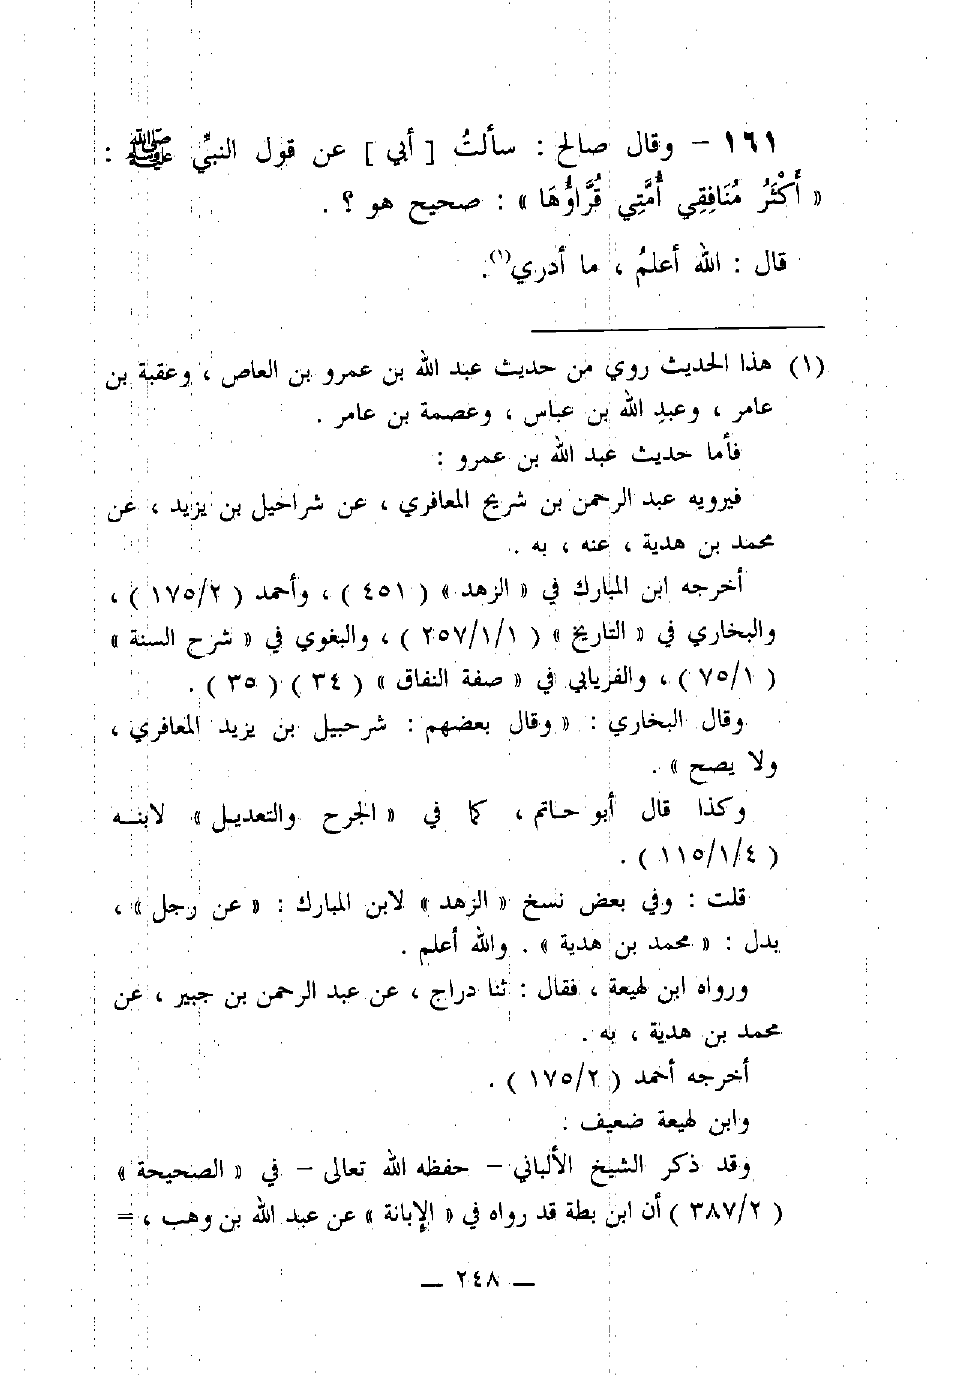 ١٦١ – وقال صالح : سألتُ [ أبي ] عن قول النبيِّ ﷺ :
« أَكْثَرُ مُنَافِقِي أُمَّتِي قُرَّاؤُهَا » : صحيح هو ؟ .
قال : الله أعلمُ ، ما أدري(١).
(١) هذا الحديث روي من حديث عبد الله بن عمرو بن العاص ، وعقبة بن
عامر ، وعبدِ الله بن عباس ، وعصمة بن عامر .
فأما حديث عبد الله بن عمرو :
فيرويه عبد الرحمن بن شريح المعافري ، عن شراحيل بن يزيد ، عن
محمد بن هدية ، عنه ، به .
أخرجه ابن المبارك في « الزهد » ( ٤٥١ ) ، وأحمد ( ١٧٥/٢ ) ،
والبخاري في « التاريخ » ( ٢٥٧/١/١ ) ، والبغوي في « شرح السنة »
( ٧٥/١ ) ، والفريابي في « صفة النفاق » ( ٣٤ ) ( ٣٥ ) .
وقال البخاري : « وقال بعضهم : شرحبيل بن يزيد المعافري ،
ولا يصح » .
وكذا قال أبو حاتم ، كما في « الجرح والتعديل » لابنه
( ١١٥/١/٤ ) .
قلت : وفي بعض نسخ « الزهد » لابن المبارك : « عن رجل » ،
بدل : « محمد بن هدية » . والله أعلم .
ورواه ابن لهيعة ، فقال : ثنا دراج ، عن عبد الرحمن بن جبير ، عن
محمد بن هدية ، به .
أخرجه أحمد ( ١٧٥/٢ ) .
وابن لهيعة ضعيف :
وقد ذكر الشيخ الألباني – حفظه الله تعالى – في « الصحيحة »
( ٣٨٧/٢ ) أن ابن بطة قد رواه في « الإبانة » عن عبد الله بن وهب ، =
— ٢٤٨ —